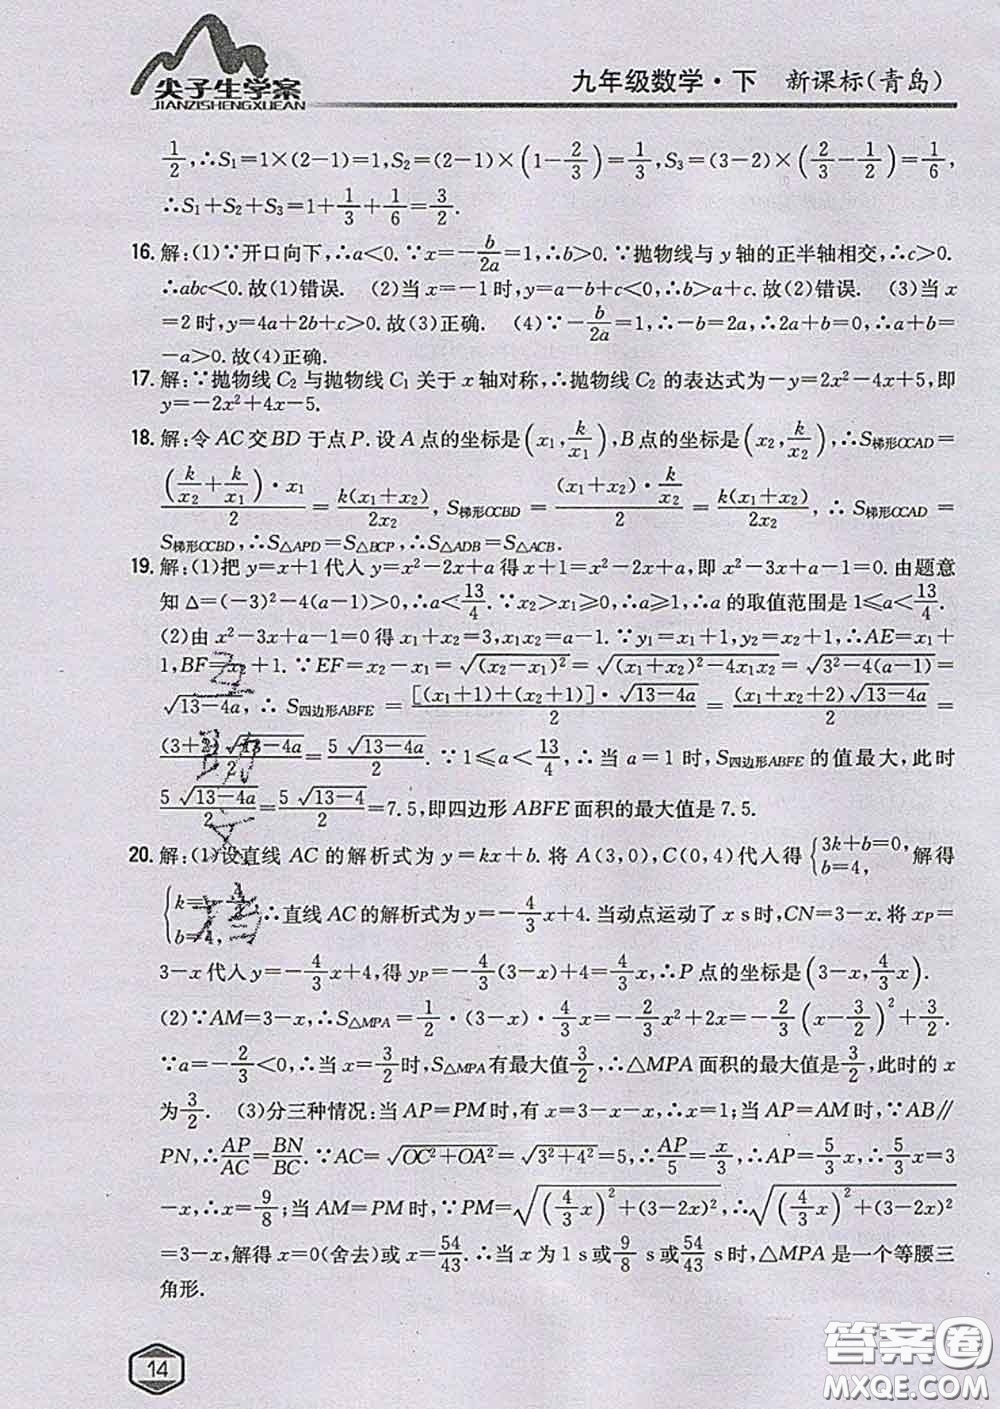 尖子生学案
JIANZISHENGXUEAN
九年级数学·下 新课标(青岛)
1/2,∴S₁=1×(2-1)=1,S₂=(2-1)×(1-2/3)=1/3,S₃=(3-2)×(2/3-1/2)=1/6,
∴S₁+S₂+S₃=1+1/3+1/6=3/2.
16. 解:(1)∵开口向下,∴a<0.∵x=-b/2a=1,∴b>0.∵抛物线与y轴的正半轴相交,∴c>0.
∴abc<0.故(1)错误. (2)当x=-1时,y=a-b+c<0,∴b>a+c.故(2)错误. (3)当x
=2时,y=4a+2b+c>0.故(3)正确. (4)∵-b/2a=1,∴-b=2a,∴2a+b=0,∴a+b=
-a>0.故(4)正确.
17. 解:∵抛物线C₂与抛物线C₁关于x轴对称,∴抛物线C₂的表达式为-y=2x²-4x+5,即
y=-2x²+4x-5.
18. 解:令AC交BD于点P.设A点的坐标是(x₁,k/x₁),B点的坐标是(x₂,k/x₂),∴S梯形OCAD=
(k/x₂+k/x₁)·x₁/2=k(x₁+x₂)/2x₂,S梯形OCBD=(x₁+x₂)·k/x₂/2=k(x₁+x₂)/2x₂,∴S梯形OCAD=
S梯形OCBD,∴S△APD=S△BCP,∴S△ADB=S△ACB.
19. 解:(1)把y=x+1代入y=x²-2x+a得x+1=x²-2x+a,即x²-3x+a-1=0.由题意
知Δ=(-3)²-4(a-1)>0,∴a<13/4.∵x₂>x₁≥0,∴a≥1,∴a的取值范围是1≤a<13/4.
(2)由x²-3x+a-1=0得x₁+x₂=3,x₁x₂=a-1.∵y₁=x₁+1,y₂=x₂+1,∴AE=x₁+
1,BF=x₂+1.∵EF=x₂-x₁=√(x₂-x₁)²=√(x₁+x₂)²-4x₁x₂=√3²-4(a-1)=
√13-4a,∴S四边形ABFE=[(x₁+1)+(x₂+1)]·√13-4a/2=(x₁+x₂+2)√13-4a/2=
(3+2)√13-4a/2=5√13-4a/2.∵1≤a<13/4,∴当a=1时,S四边形ABFE的值最大,此时
5√13-4a/2=5√13-4/2=7.5,即四边形ABFE面积的最大值是7.5.
20. 解:(1)设直线AC的解析式为y=kx+b.将A(3,0),C(0,4)代入得{3k+b=0, b=4,解得
{k=-4/3, b=4,∴直线AC的解析式为y=-4/3x+4.当动点运动了x s时,CN=3-x.将xP=
3-x代入y=-4/3x+4,得yP=-4/3(3-x)+4=4/3x,∴P点的坐标是(3-x,4/3x).
(2)∵AM=3-x,∴S△MPA=1/2·(3-x)·4/3x=-2/3x²+2x=-2/3(x-3/2)²+3/2.
∵a=-2/3<0,∴当x=3/2时,S△MPA有最大值3/2,∴△MPA面积的最大值是3/2,此时的x
为3/2. (3)分三种情况:当AP=PM时,有x=3-x-x,∴x=1;当AP=AM时,∵AB∥
PN,∴AP/AC=BN/BC.∵AC=√OC²+OA²=√3²+4²=5,∴AP/5=x/3,∴AP=5/3x,∴5/3x=3
-x,∴x=9/8;当AM=PM时,∵PM=√(4/3x)²+(3-2x)²,∴√(4/3x)²+(3-2x)²
=3-x,解得x=0(舍去)或x=54/43.∴当x为1 s或9/8 s或54/43 s时,△MPA是一个等腰三
角形.
互
助
文
档
14
答案圈
MXQE.COM